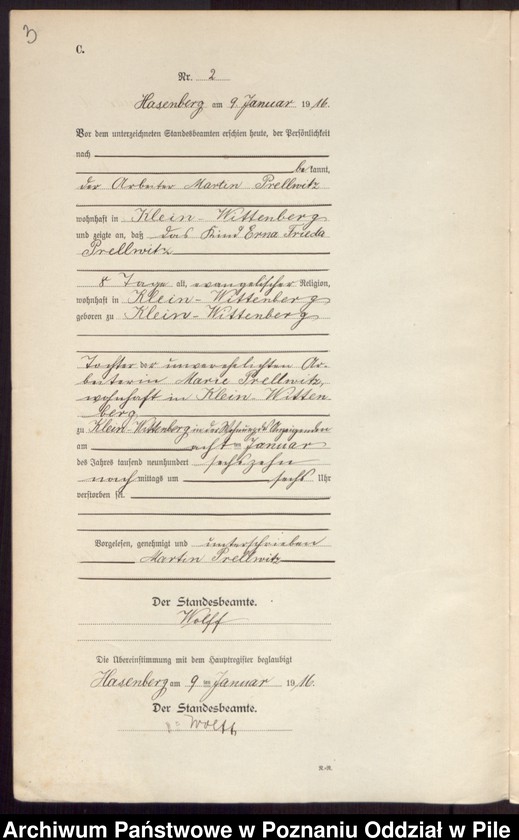 3
C.
Nr. 2
Hasenberg am 9 Januar 1916.
Vor dem unterzeichneten Standesbeamten erschien heute, der Persönlichkeit
nach
bekannt,
der Arbeiter Martin Prellwitz
wohnhaft in Klein-Wittenberg
und zeigte an, daß das Kind Erna Frieda
Prellwitz
8 Tage alt, evangelischer Religion,
wohnhaft in Klein-Wittenberg
geboren zu Klein-Wittenberg
Tochter der unverehelichten Ar-
beiterin Marie Prellwitz,
wohnhaft in Klein-Witten
berg
zu Klein-Wittenberg in der Wohnung des Anzeigenden
am acht ten Januar
des Jahres tausend neunhundert sechszehn
nachmittags um sechs Uhr
verstorben sei.
Vorgelesen, genehmigt und unterschrieben
Martin Prellwitz
Der Standesbeamte.
Wolff
Die Übereinstimmung mit dem Hauptregister beglaubigt
Hasenberg am 9 ten Januar 1916.
Der Standesbeamte.
Wolff
K.-R.
Archiwum Państwowe w Poznaniu Oddział w Pile